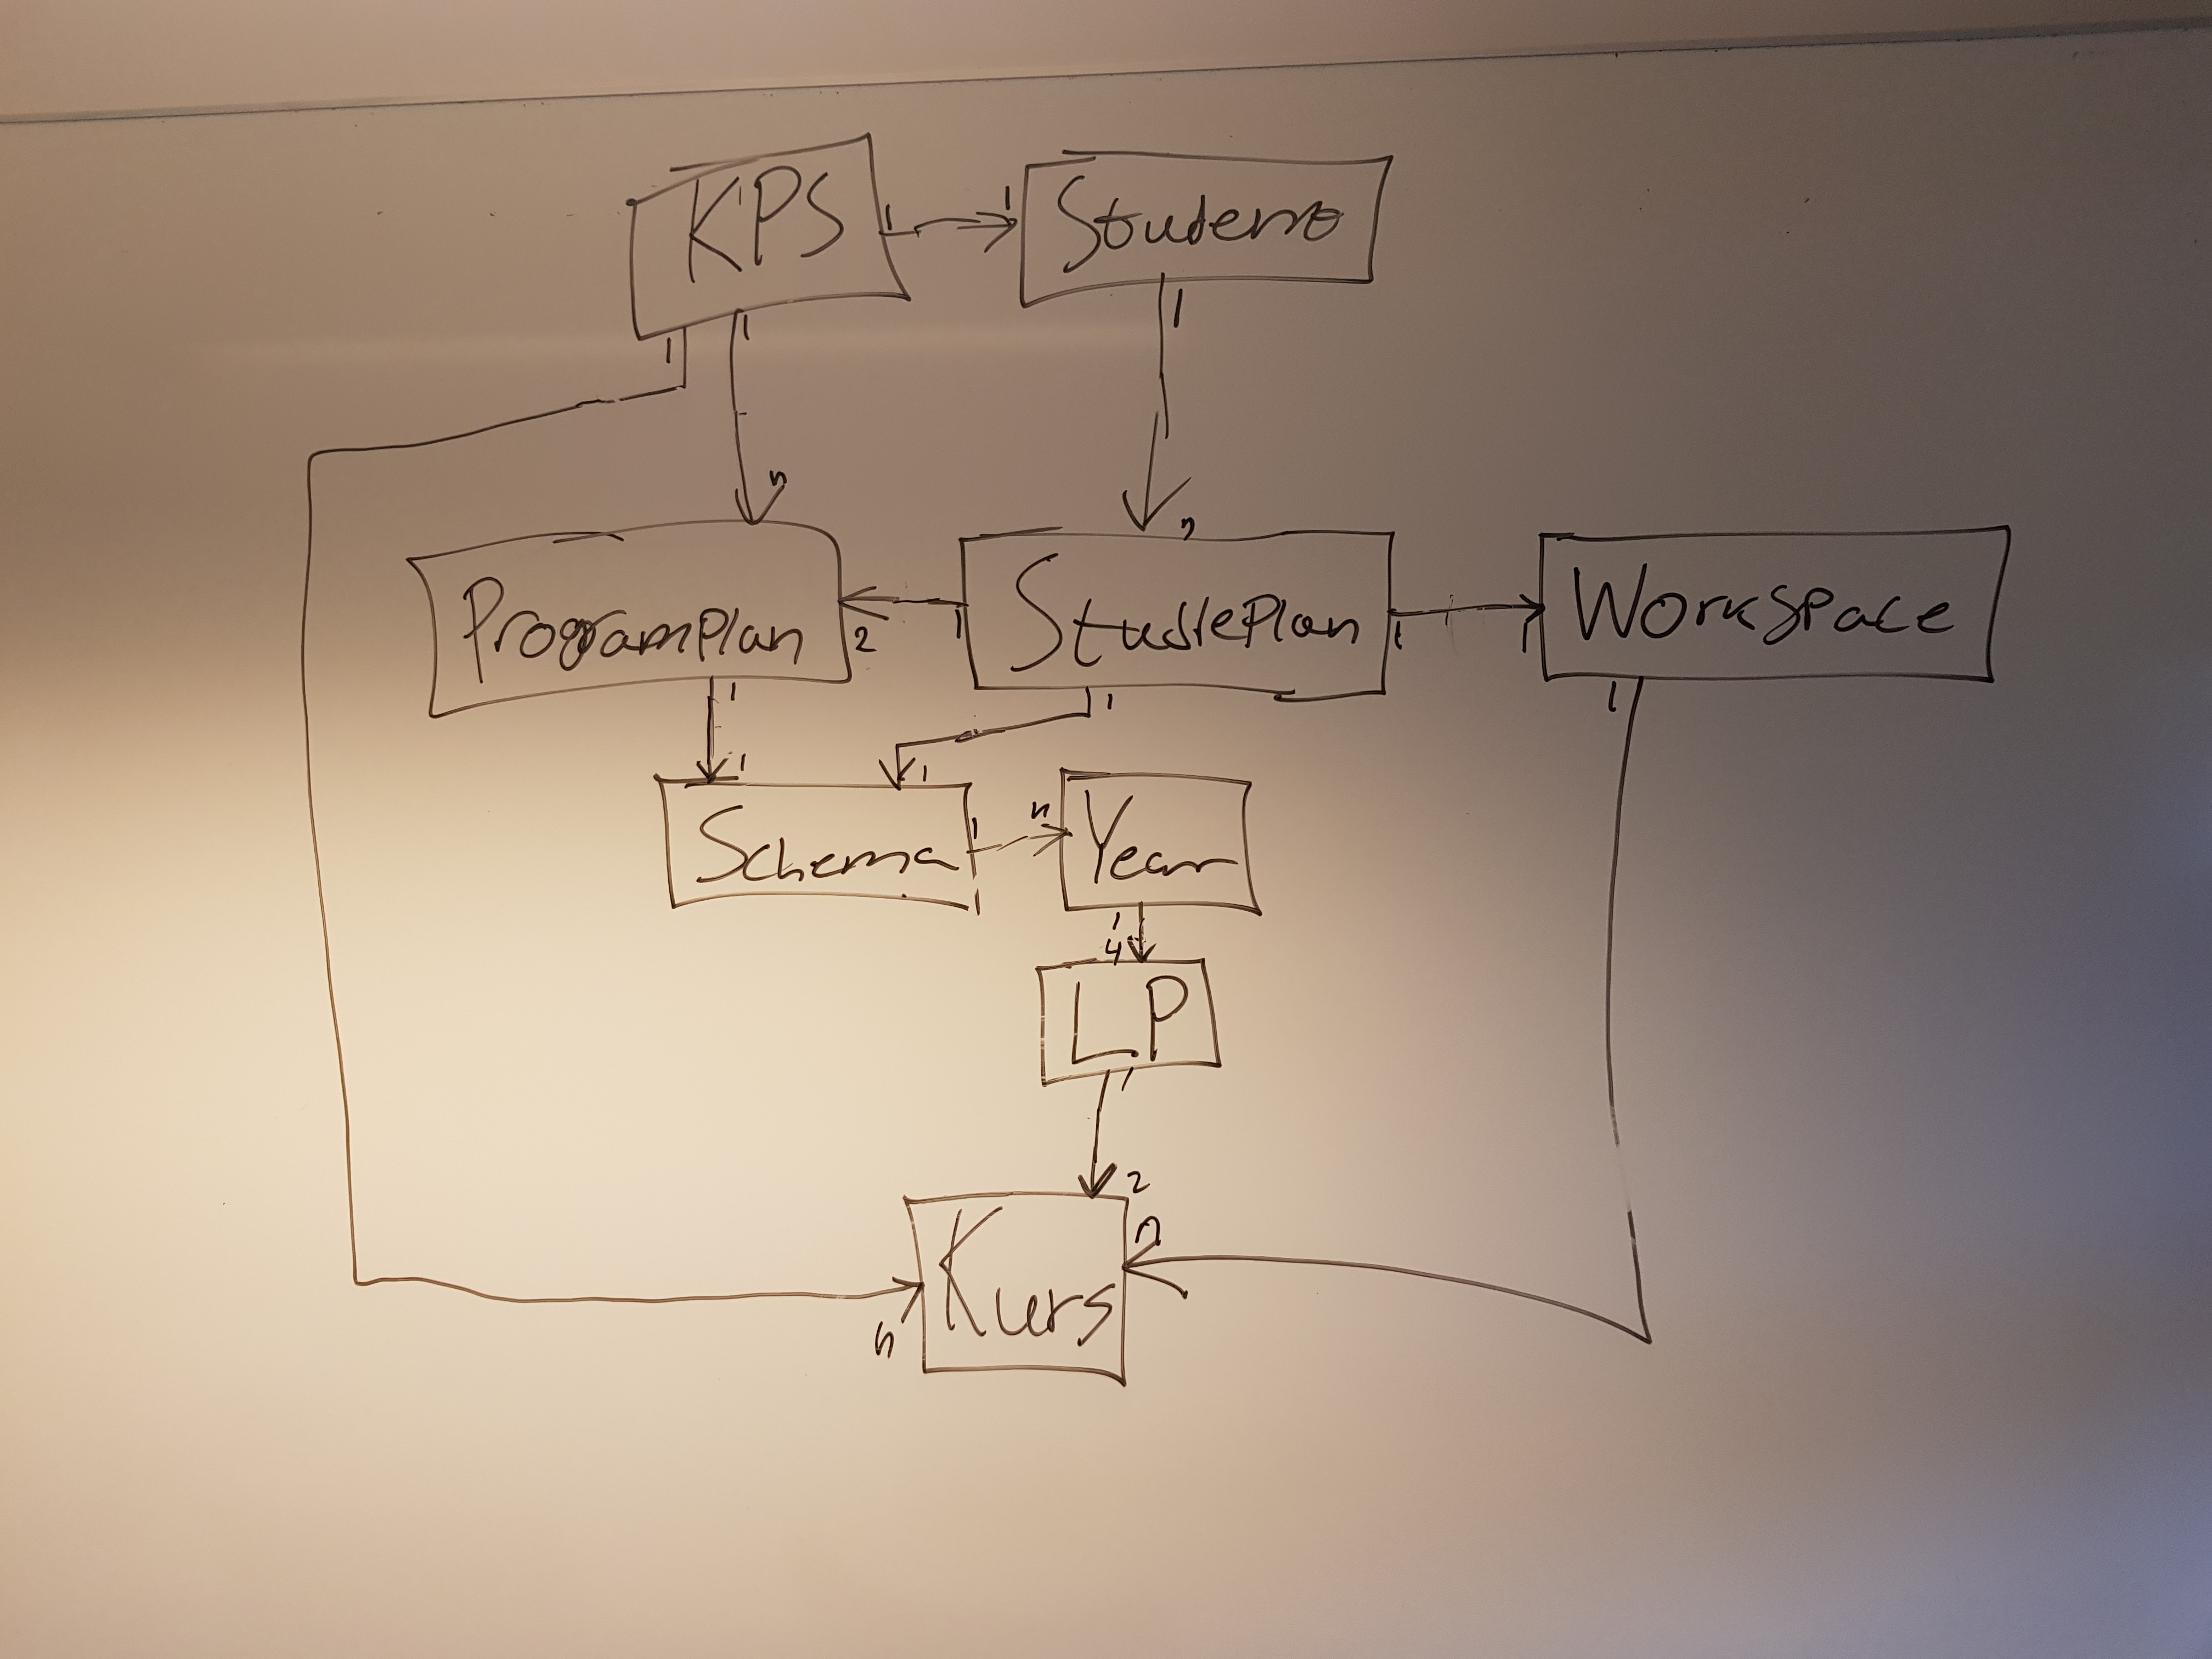 KPS
1
1
Student
1
1
1
n
n
ProgramPlan
2
1
StudiePlan
1
1
Workspace
1
1
1
1
1
Schema
1
n
Year
1
4
LP
1
2
n
Kurs
n